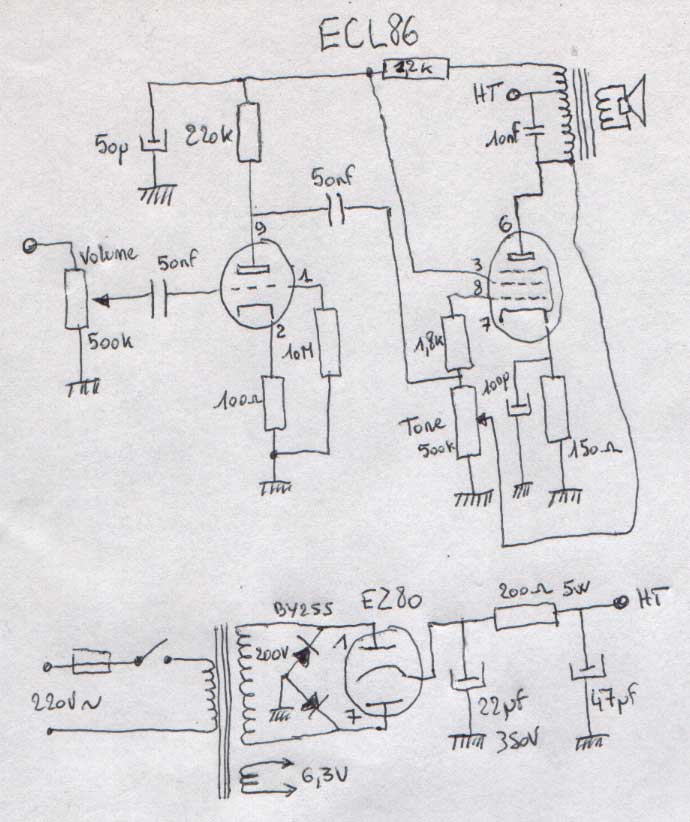 ECL86
1,2k
HT
50µ
220k
10nf
50nf
9
6
Volume
50nf
1
3
8
500k
2
7
10M
1,8k
100Ω
100µ
Tone
500k
150Ω
BY255
EZ80
200Ω 5W
HT
1
200V
220V~
7
22µf
47µf
350V
6,3V